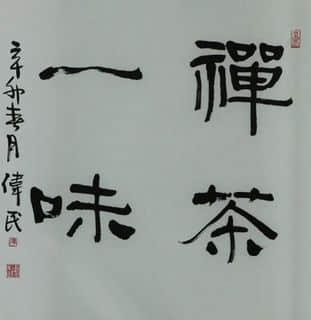 禪茶
一味
辛卯春月偉民